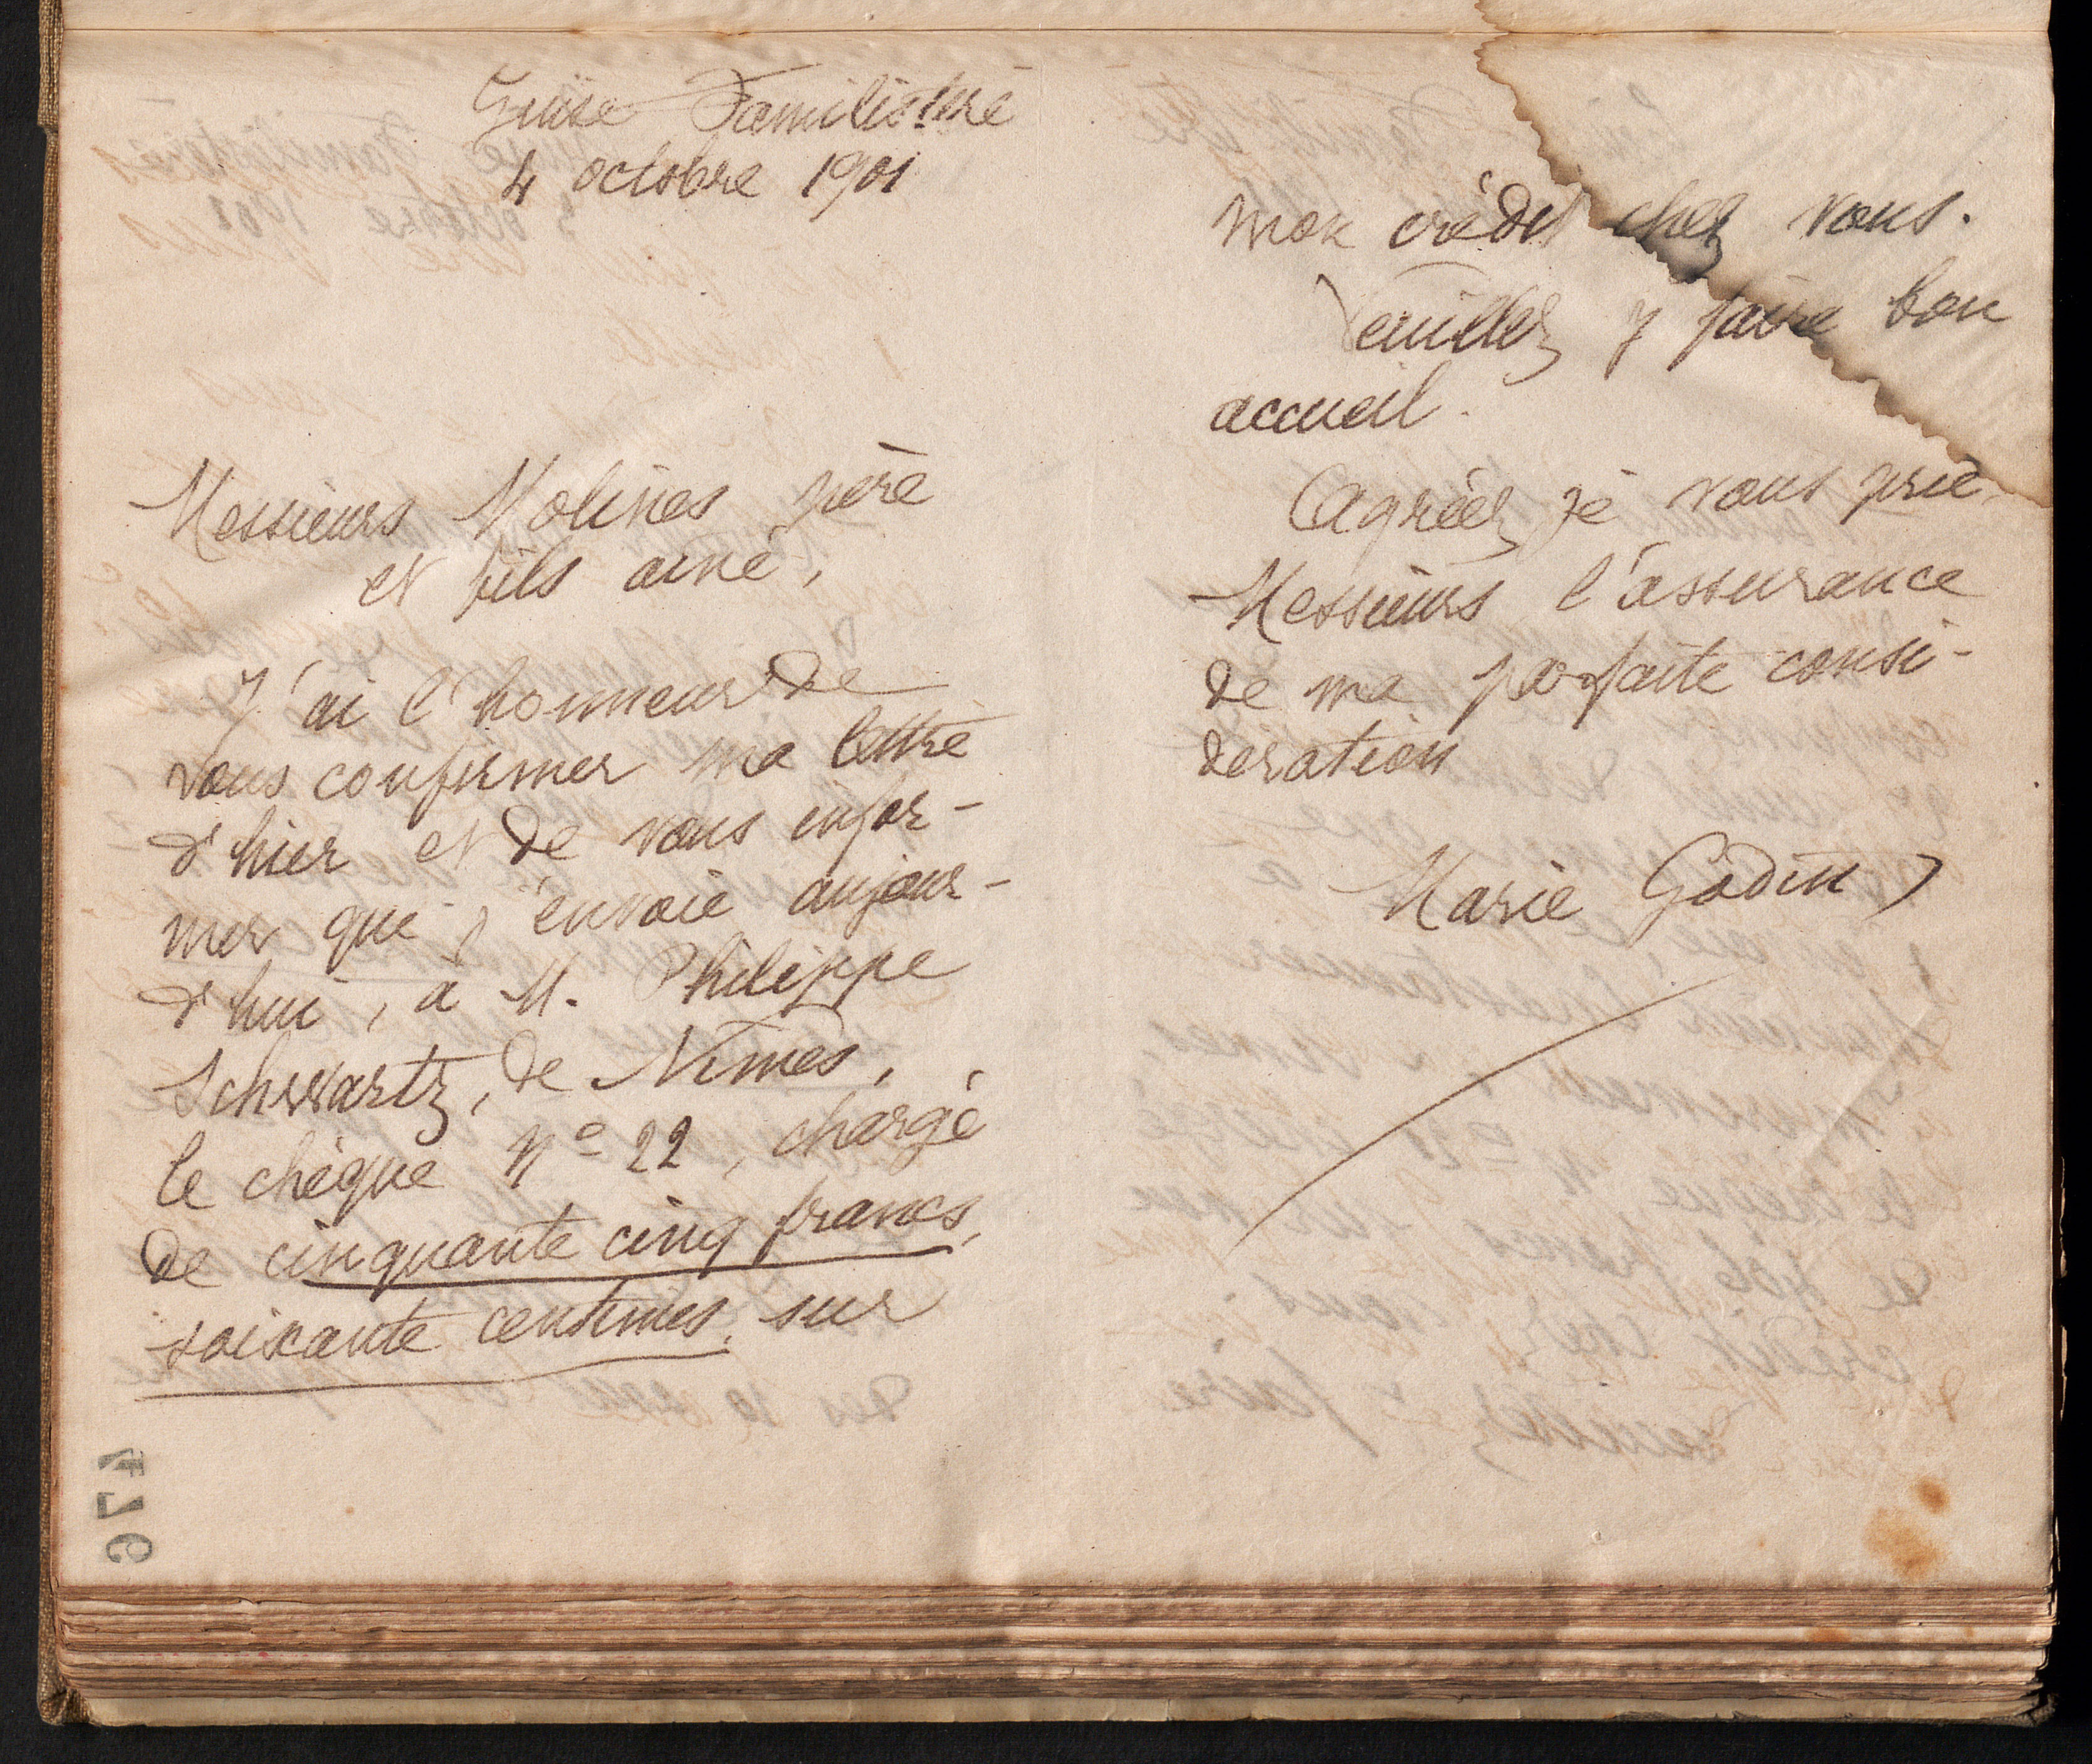 Guise Familistère
4 octobre 1901
Messieurs Molines père
et fils aîné,
J'ai l'honneur de
vous confirmer ma lettre
d'hier et de vous infor-
mer que j'envoie aujour-
d'hui, à M. Philippe
Schwartz, de Nîmes,
le chèque No 22, chargé
de cinquante cinq francs,
soixante centimes, sur
mon crédit chez vous.
Veuillez y faire bon
accueil.
Agréez je vous prie
Messieurs l'assurance
de ma parfaite consi-
dération
Marie Godin
476